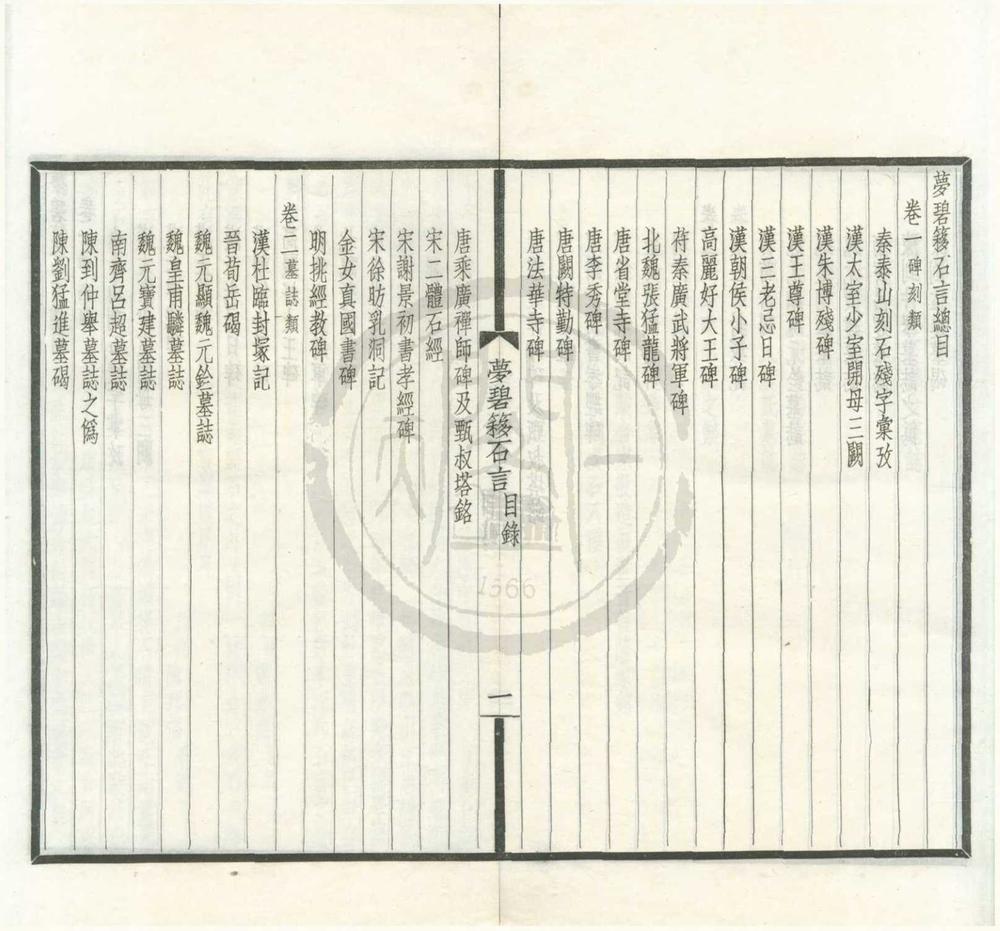 夢碧簃石言總目
卷一碑刻類
秦泰山刻石殘字彙攷
漢太室少室開母三闕
漢朱博殘碑
漢王尊碑
漢三老忌日碑
漢朝侯小子碑
高麗好大王碑
苻秦廣武將軍碑
北魏張猛龍碑
唐省堂寺碑
唐李秀碑
唐闕特勤碑
唐法華寺碑
夢碧簃石言
目錄
一
唐乘廣禪師碑及甄叔塔銘
宋二體石經
宋謝景初書孝經碑
宋徐昉乳洞記
金女真國書碑
明挑經教碑
卷二墓誌類
漢杜臨封冢記
晉荀岳碣
魏元顯魏元㻇墓誌
魏皇甫驎墓誌
魏元寶建墓誌
南齊呂超墓誌
陳到仲舉墓誌之僞
陳劉猛進墓碣
1566